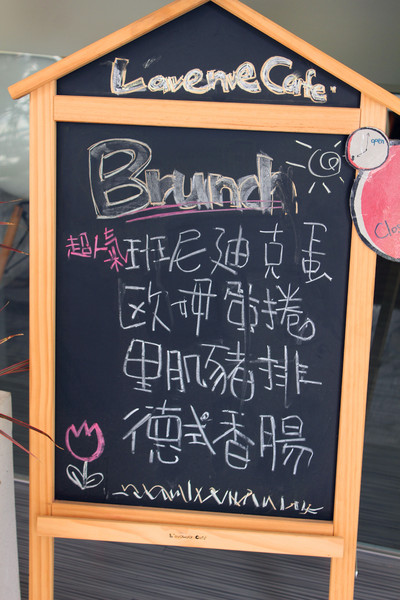 Lavenve Cafe
Brunch
超人氣班尼迪克蛋
歐姆蛋捲
里肌豬排
德式香腸
open
Clos